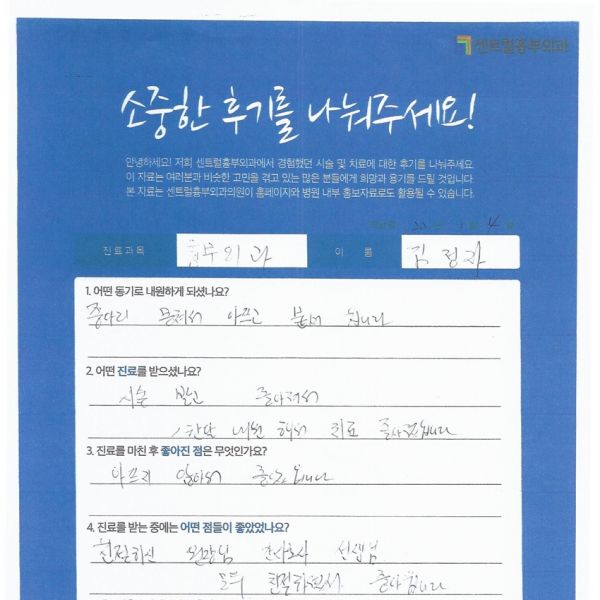 센트럴흉부외과
소중한 후기를 나눠주세요!
안녕하세요! 저희 센트럴흉부외과에서 경험했던 시술 및 치료에 대한 후기를 나눠주세요.
이 자료는 여러분과 비슷한 고민을 겪고 있는 많은 분들에게 희망과 용기를 드릴 것입니다.
본 자료는 센트럴흉부외과의원이 홈페이지와 병원 내부 홍보자료로도 활용될 수 있습니다.
진료과목 흉부외과 이 름 김정자
1. 어떤 동기로 내원하게 되셨나요?
종아리 아프고
2. 어떤 진료를 받으셨나요?
시술 받고 좋아져서
내원 해서 치료
3. 진료를 마친 후 좋아진 점은 무엇인가요?
아프지 않아서
4. 진료를 받는 중에는 어떤 점들이 좋았었나요?
친절하신 원장님 간호사 선생님
모두 친절하셔서